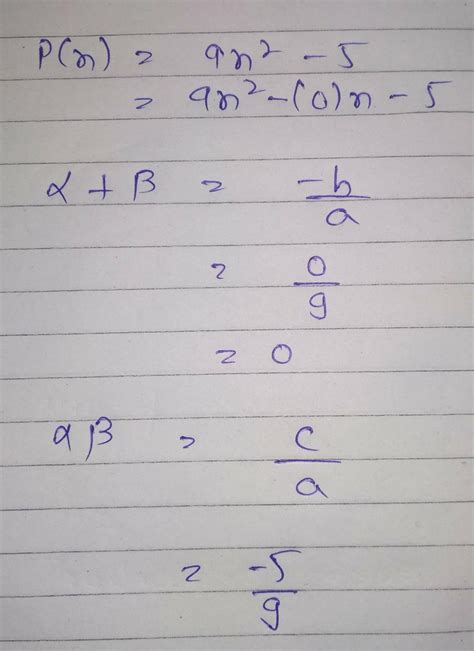 P(x) = 9x² - 5
= 9x² - (0)x - 5
α + β = -b/a
= 0/9
= 0
αβ = c/a
= -5/9